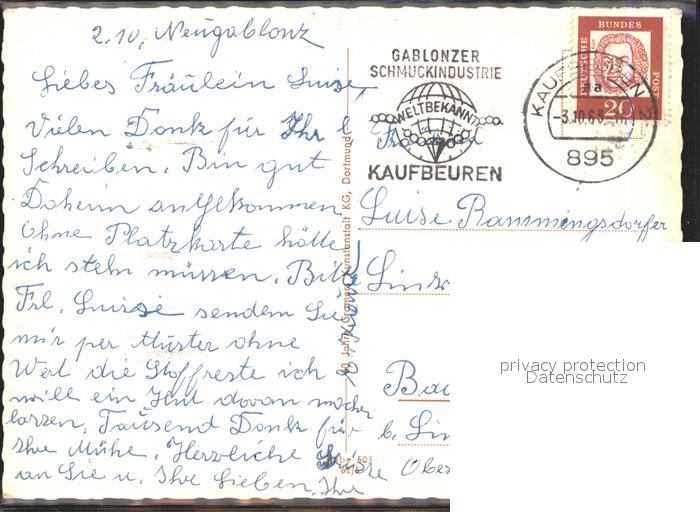 2.10, Neugablonz
Liebes Fräulein Luise,
Vielen Dank für Ihr l
Schreiben. Bin gut
Daheim angekommen
ohne Platzkarte hätte
ich stehn müssen. Bitte
Frl. Luise senden Sie
mir per Muster ohne
Wert die Stoffreste ich
will ein Hut davon machen
lassen, Tausend Dank für
Ihre Mühe. Herzliche Grüsse
an Sie u. Ihre Lieben. Ihre
GABLONZER
SCHMUCKINDUSTRIE
WELTBEKANNT
KAUFBEUREN
DEUTSCHE
BUNDES
POST
20
KAUFBEUREN
aa
-3.10.63.-
895
Luise Rammingsdorfer
Linz
Ba
b. Lin
Ober
50 Jahre Kunstanstalt KG, Dortmund
privacy protection
Datenschutz